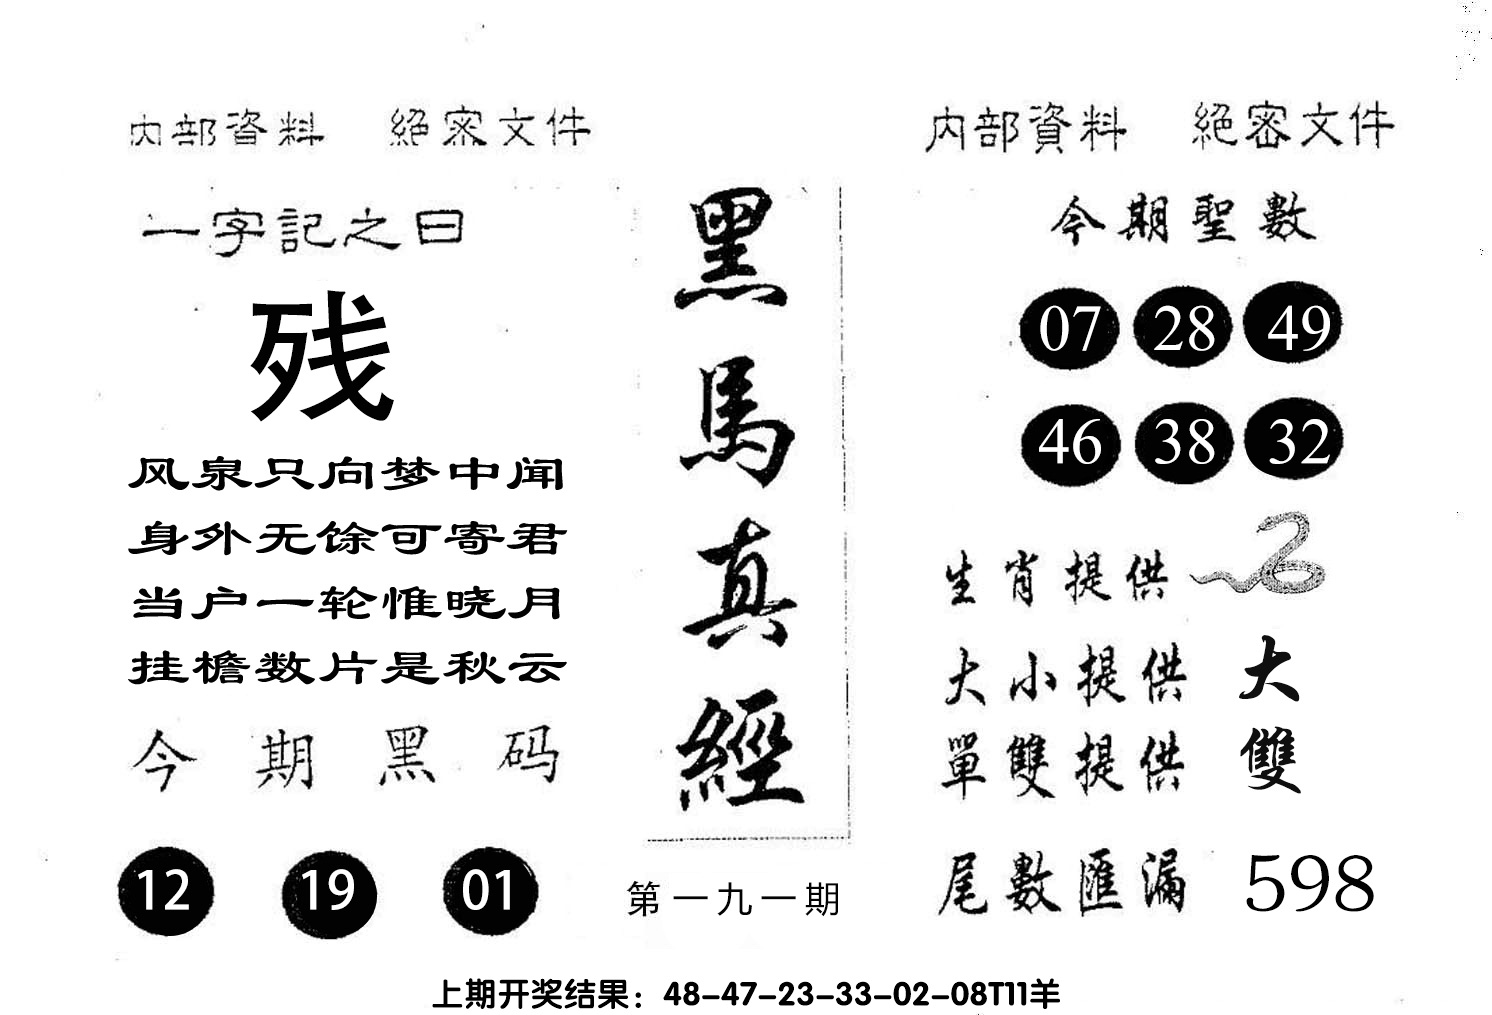 内部資料 絕密文件
一字記之曰
残
风泉只向梦中闻
身外无馀可寄君
当户一轮惟晓月
挂檐数片是秋云
今期黑码
12 19 01
黑馬真經
第一九一期
内部資料 絕密文件
今期聖數
07 28 49
46 38 32
生肖提供
大小提供 大
單雙提供 雙
尾數匯漏 598
上期开奖结果：48-47-23-33-02-08T11羊